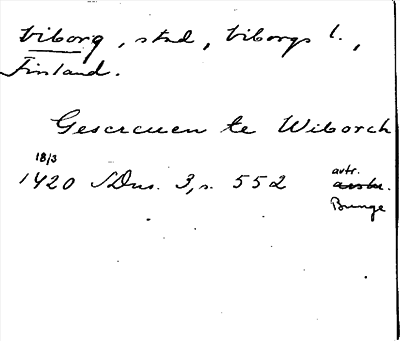 Viborg, stad, Viborgs l.,
Finland.
Gescreuen te Wiborch
18/3
1420 SDns. 3, s. 552 avtr.
Bunge